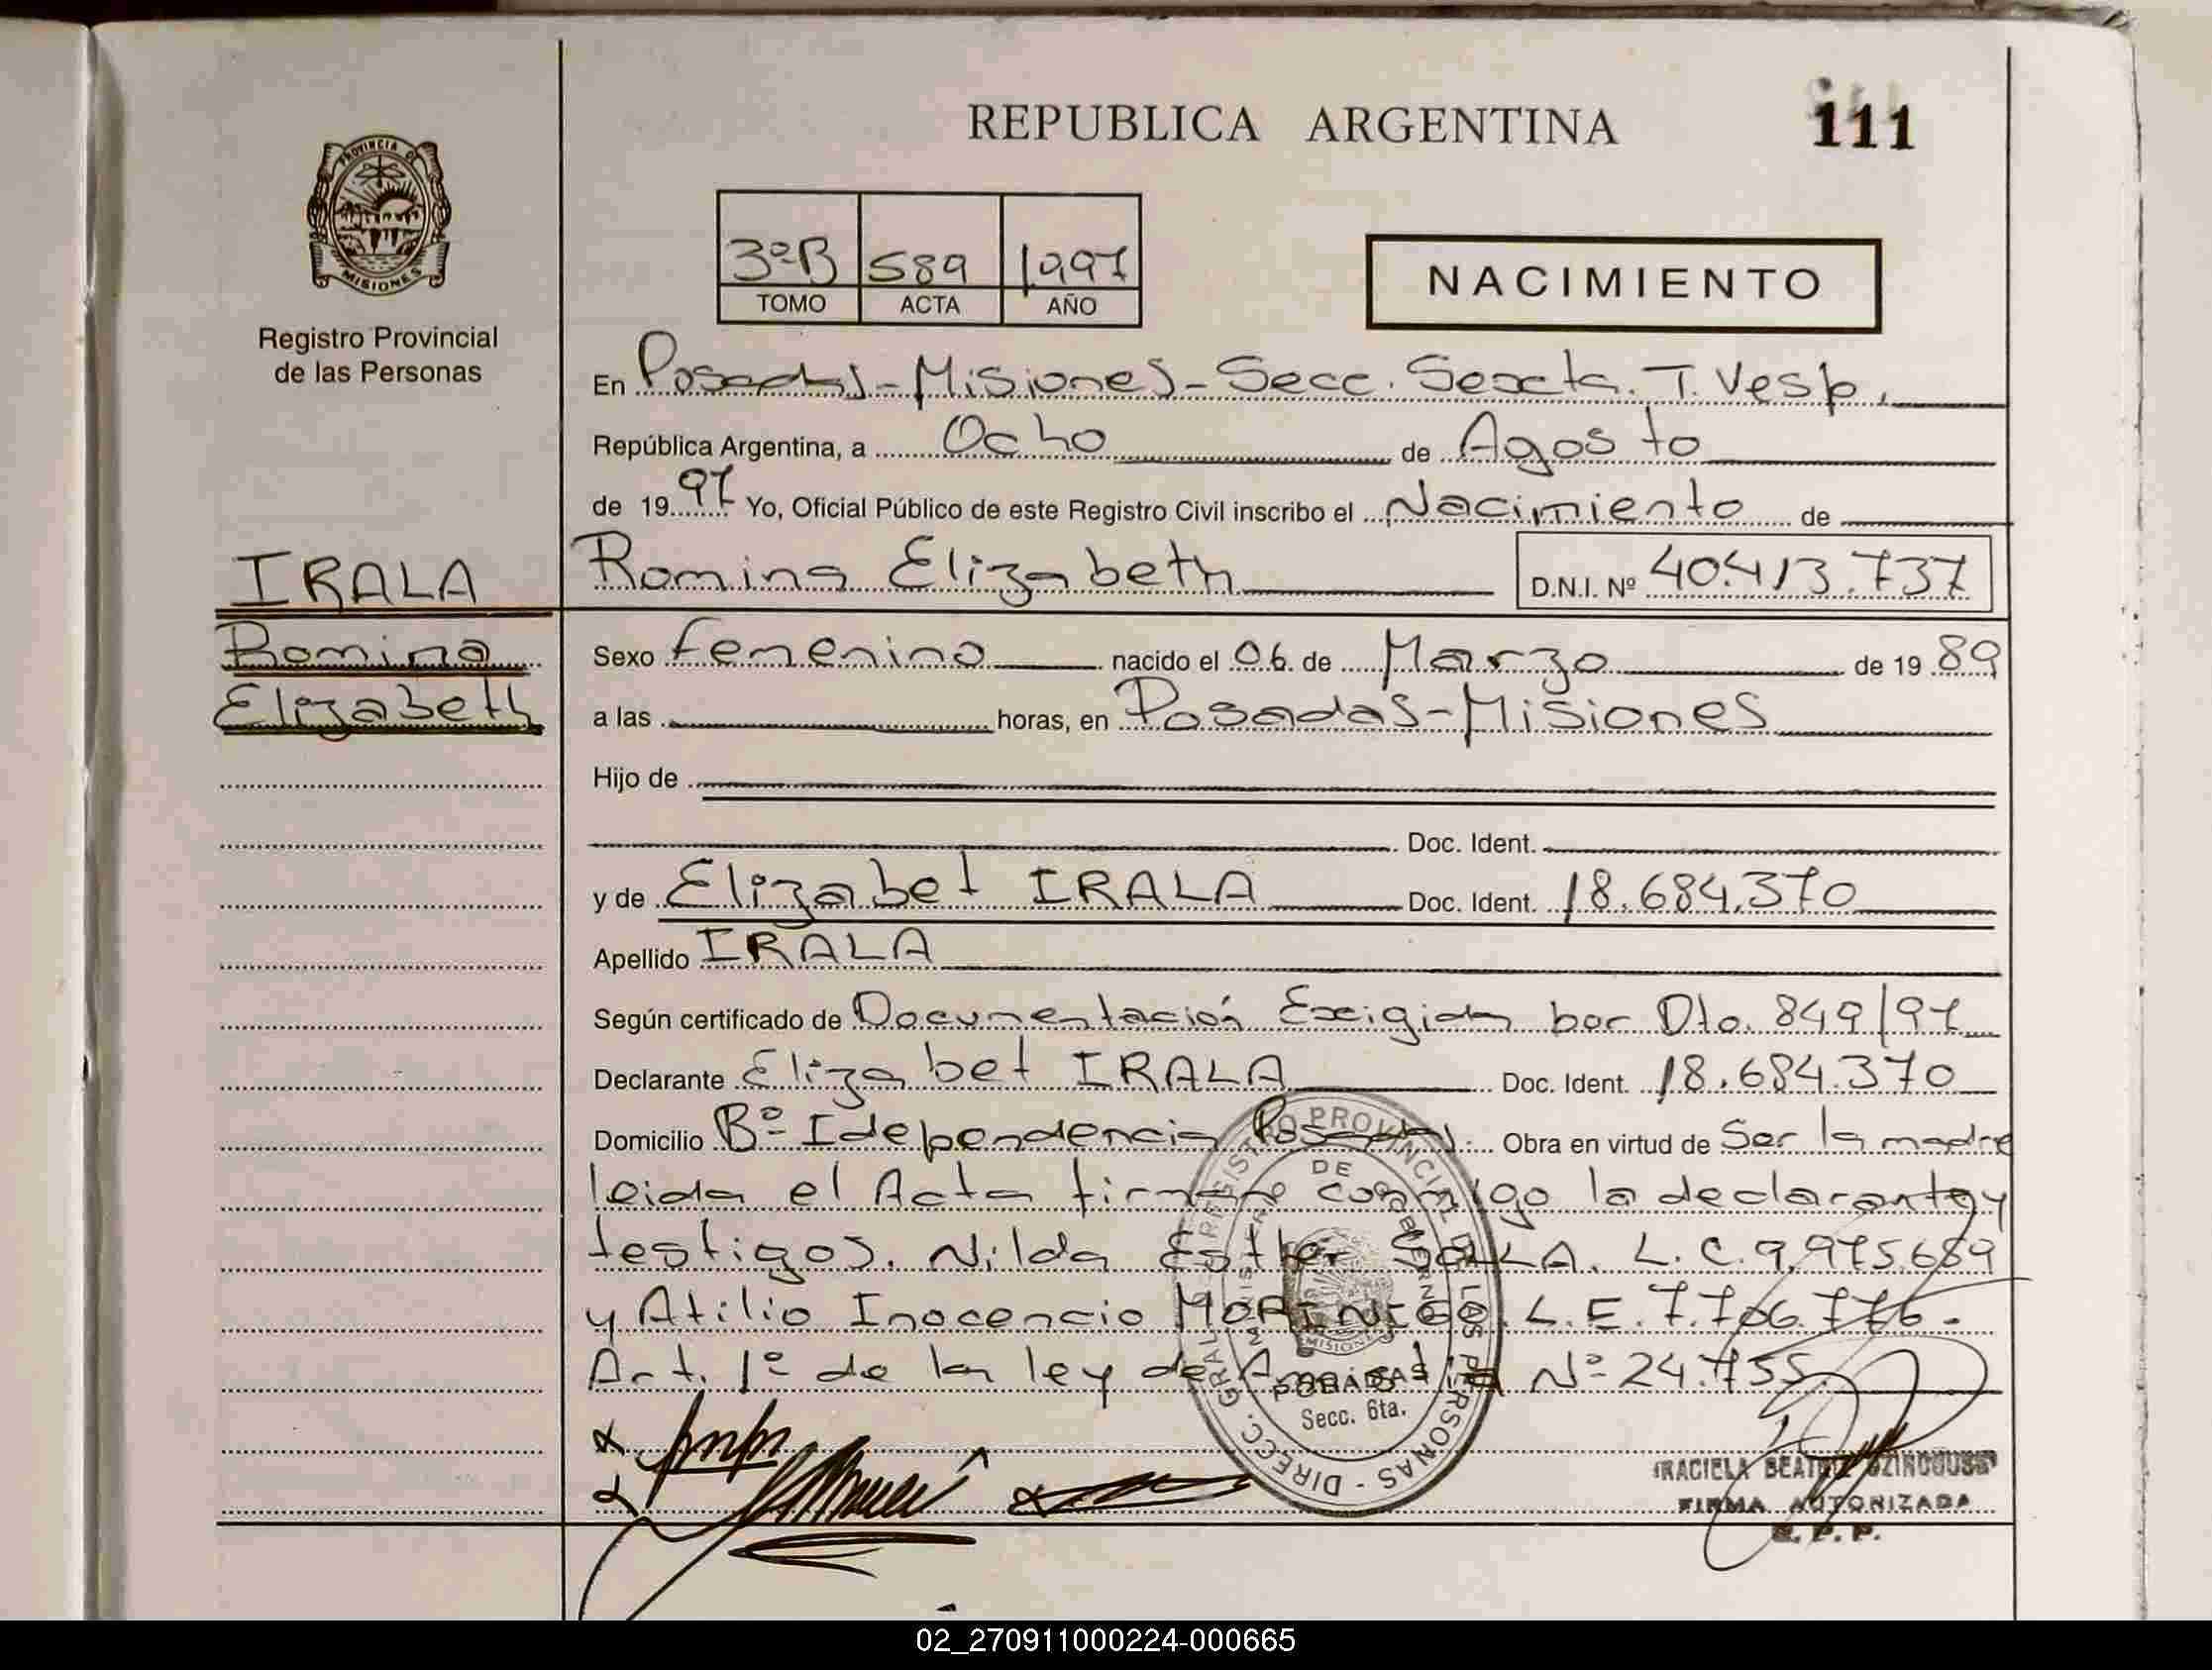 REPUBLICA ARGENTINA
111
PROVINCIA DE
MISIONES
Registro Provincial
de las Personas
3ºB 589 1997
TOMO ACTA AÑO
NACIMIENTO
En Posadas-Misiones-Secc. Sexta. T. Vesp.
República Argentina, a Ocho de Agosto
de 1997 Yo, Oficial Público de este Registro Civil inscribo el Nacimiento de
IRALA
Romina
Elizabeth
Romina Elizabeth D.N.I. Nº 40.413.737
Sexo Femenino nacido el 06 de Marzo de 1989
a las horas, en Posadas-Misiones
Hijo de
Doc. Ident.
y de Elizabet IRALA Doc. Ident. 18.684.370
Apellido IRALA
Según certificado de Documentación Exigida por Dto. 849/97
Declarante Elizabet IRALA Doc. Ident. 18.684.370
Domicilio Bº Idependencia Posadas Obra en virtud de Ser la madre
leida el Acta firman conmigo la declarante y
testigos. Nilda Esther L. C. 9.975.689
y Atilio Inocencio MORINIGO L. E. 7.706.776.
Art. 1º de la ley de Nº 24.755
DIRECC. GRAL. REGISTRO PROVINCIAL DE LAS PERSONAS
MINISTERIO DE GOBIERNO
MISIONES
POSADAS
Secc. 6ta.
GRACIELA BEATRIZ
FIRMA AUTORIZADA
R. P. P.
02_270911000224-000665